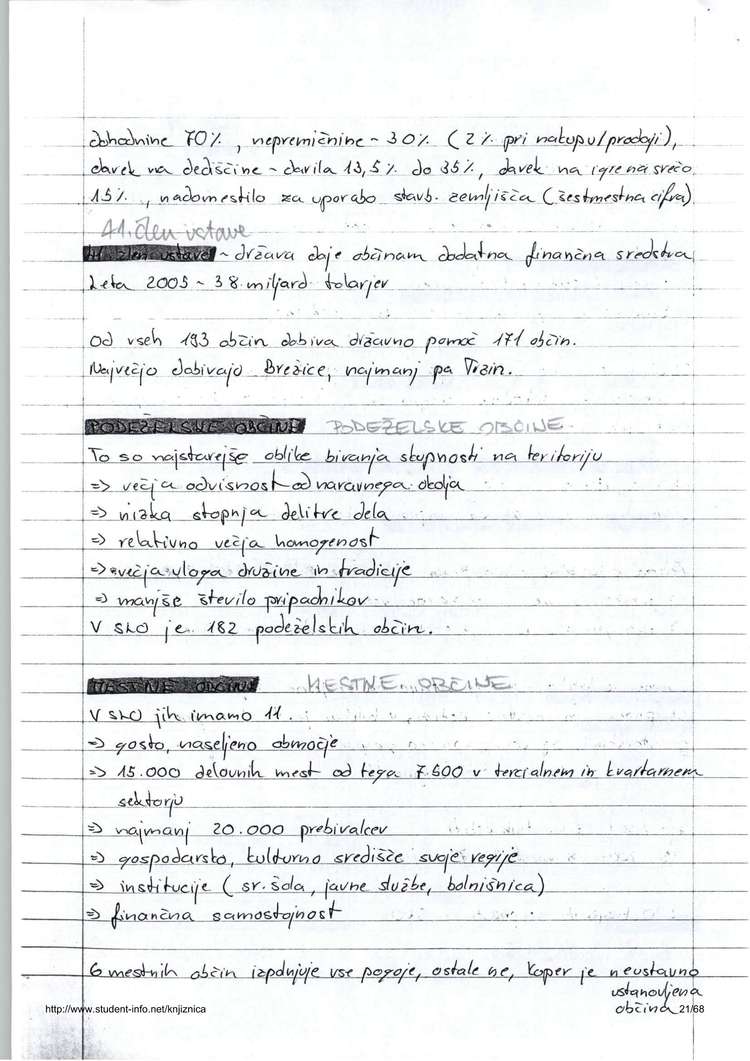 dohodnine 70% , nepremičnine ~ 30% ( 2% pri nakupu/prodaji),
davek na dediščine ~ darila 13,5% do 35%, davek na igre na srečo
15% , nadomestilo za uporabo stavb. zemljišča (šestmestna cifra)
41. člen ustave
41. člen ustave ~ država daje občinam dodatna finančna sredstva
Leta 2005 ~ 38 miljard tolarjev
Od vseh 193 občin dobiva državno pomoč 171 občin.
Največjo dobivajo Brežice, najmanj pa Trzin.
PODEŽELSKE OBČINE PODEŽELSKE OBČINE
To so najstarejše oblike bivanja skupnosti na teritoriju
=> večja odvisnost od naravnega okolja
=> nizka stopnja delitve dela
=> relativno večja homogenost
=> večja vloga družine in tradicije
=> manjše število pripadnikov
V SLO je 182 podeželskih občin.
MESTNE OBČINE MESTNE OBČINE
V SLO jih imamo 11.
=> gosto, naseljeno območje
=> 15.000 delovnih mest od tega 7.500 v tercialnem in kvartarnem
sektorju
=> najmanj 20.000 prebivalcev
=> gospodarsko, kulturno središče svoje regije
=> institucije ( sr. šola, javne službe, bolnišnica)
=> finančna samostojnost
6 mestnih občin izpolnjuje vse pogoje, ostale ne, Koper je neustavno
ustanovljena
občina 21/68
http://www.student-info.net/knjiznica